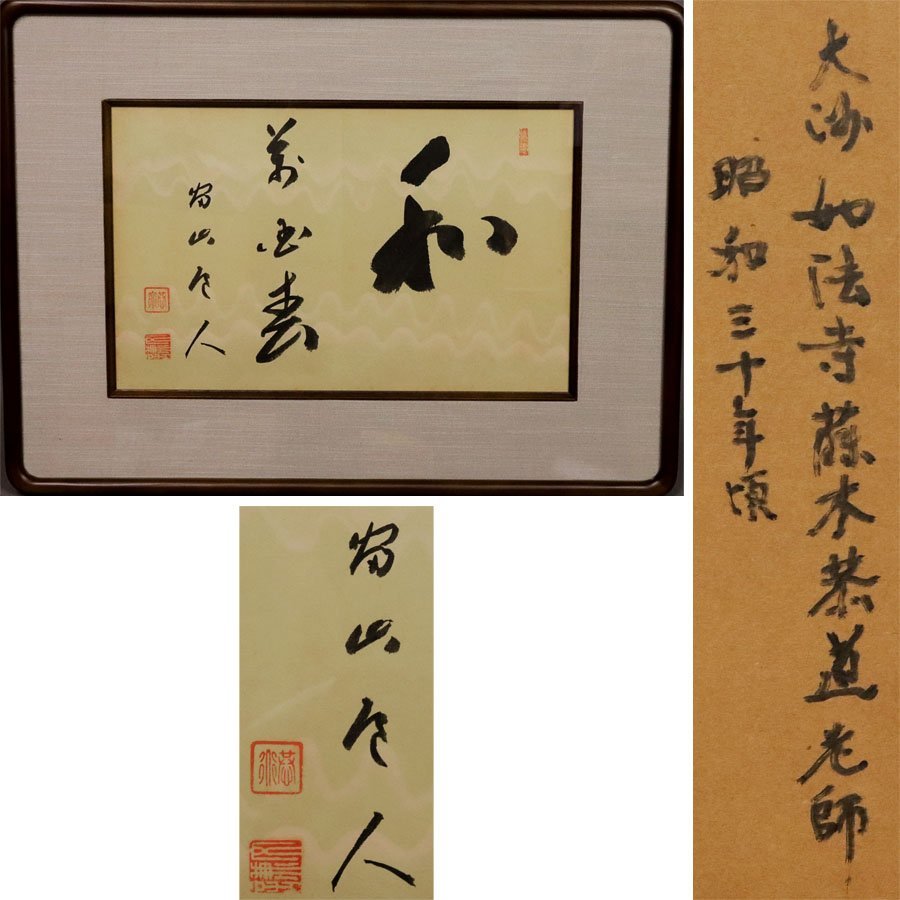 和
萬国春
富山道人
大洲如法寺藤木恭道老師
昭和三十年頃
富山道人